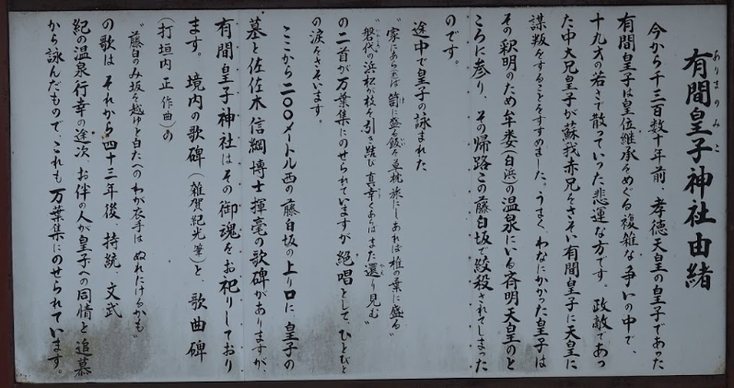 有間皇子神社由緒
ありまのみこ
今から千三百数十年前、孝徳天皇の皇子であった
有間皇子は皇位継承をめぐる複雑な争いの中で、
十九才の若さで散っていった悲運な方です。政敵であっ
た中大兄皇子が蘇我赤兄をさそい有間皇子に天皇に
謀叛をすることをすすめました。うまくわなにかかった皇子は
その釈明のため牟婁(白浜)の温泉にいる斉明天皇のと
ころに参り、その帰路この藤白坂で絞殺されてしまった
のです。
途中で皇子の詠まれた
"家にあれば笥に盛る飯を草枕旅にしあれば椎の葉に盛る"
"磐代の浜松が枝を引き結び真幸くあらばまた還り見む"
の二首が万葉集にのせられていますが絶唱として、ひとびと
の涙をさそいます。
ここから二〇〇メートル西の藤白坂の上り口に、皇子の
墓と佐佐木信綱博士揮毫の歌碑がありますが、
有間皇子神社はその御魂をお祀りしており
ます。境内の歌碑(雑賀紀光筆)と、歌曲碑
(打垣内正作曲)の
"藤白のみ坂を越ゆと白たへのわが衣手はぬれにけるかも"
の歌は それから四十三年後 持統 文武
紀の温泉行幸の途次、お伴の人が皇子への同情と追慕
から詠んだもので、これも万葉集にのせられています。